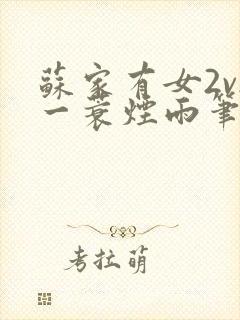 蘇家有女2v
一蓑煙雨筆
考拉萌